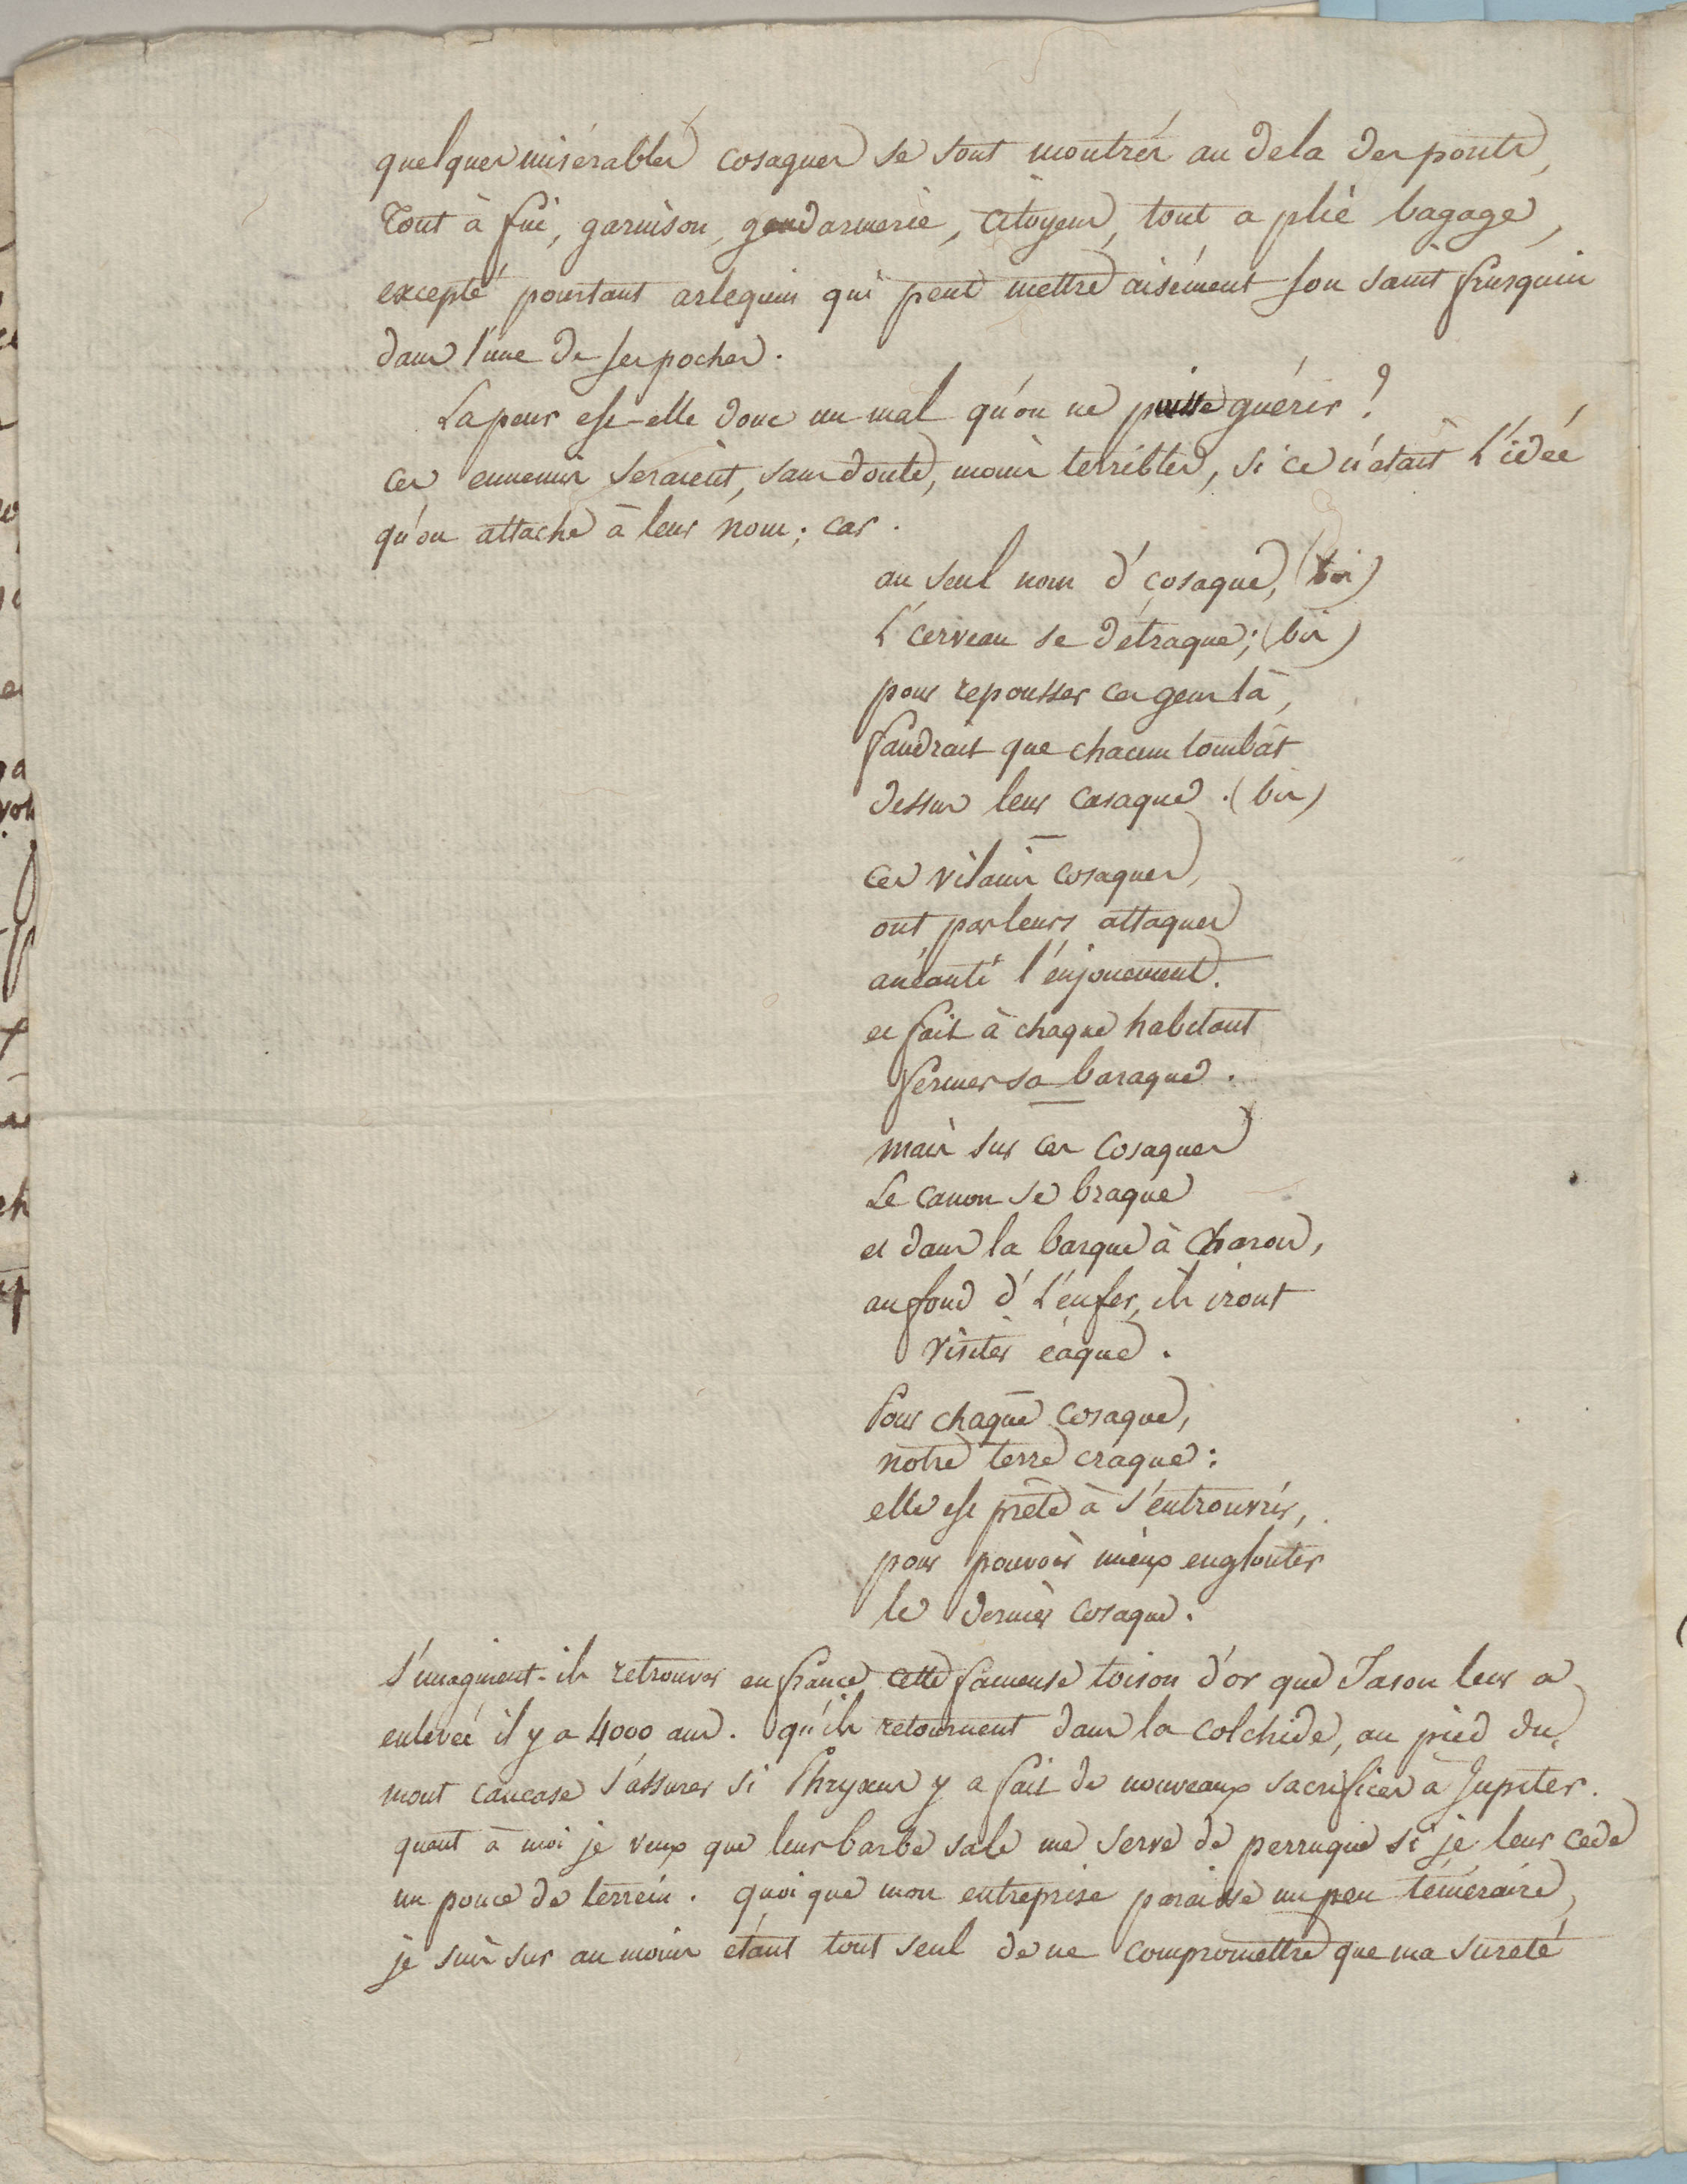 quelques misérables cosaques se sont montrés au dela des ponts,
Tout à fui, garnison, gendarmerie, citoyens, tout a plié bagage,
excepté pourtant arlequin qui peut mettre aisément son saint frusquin
dans l'une de ses poches.
La peur est-elle donc un mal qu'on ne puisse guérir ?
ces ennemis seraient, sans doute, moins terribles, si ce n'était l'idée
qu'on attache à leur nom ; car.
au seul nom d' cosaque, (bis)
L' cerveau se détraque ; (bis)
pour repousser ces gens là,
faudrait que chacun tombât
dessus leur casaque. (bis)
ces vilains cosaques,
ont par leurs attaques
anéanti l'enjouement.
et fait à chaque habitant
fermer sa baraque.
mais sur ces Cosaques
Le canon se braque
et dans la barque à Charon,
au fond d' l'enfer, ils iront
visiter éaque.
Pour chaque cosaque,
notre terre craque :
elle est prête à s'entrouvrir,
pour pouvoir mieux engloutir
le dernier cosaque.
s'imaginent-ils retrouver en france cette fameuse toison d'or que Jason leur a
enlevée il y a 4000 ans. qu'ils retournent dans la colchide, au pied du
mont caucase s'assurer si Phryxus y a fait de nouveaux sacrifices à Jupiter.
quant à moi je veux que leur barbe sale me serve de perruque si je leur cede
un pouce de terrein. quoi que mon entreprise paraisse un peu téméraire,
je suis sur au moins étant tout seul de ne compromettre que ma sureté